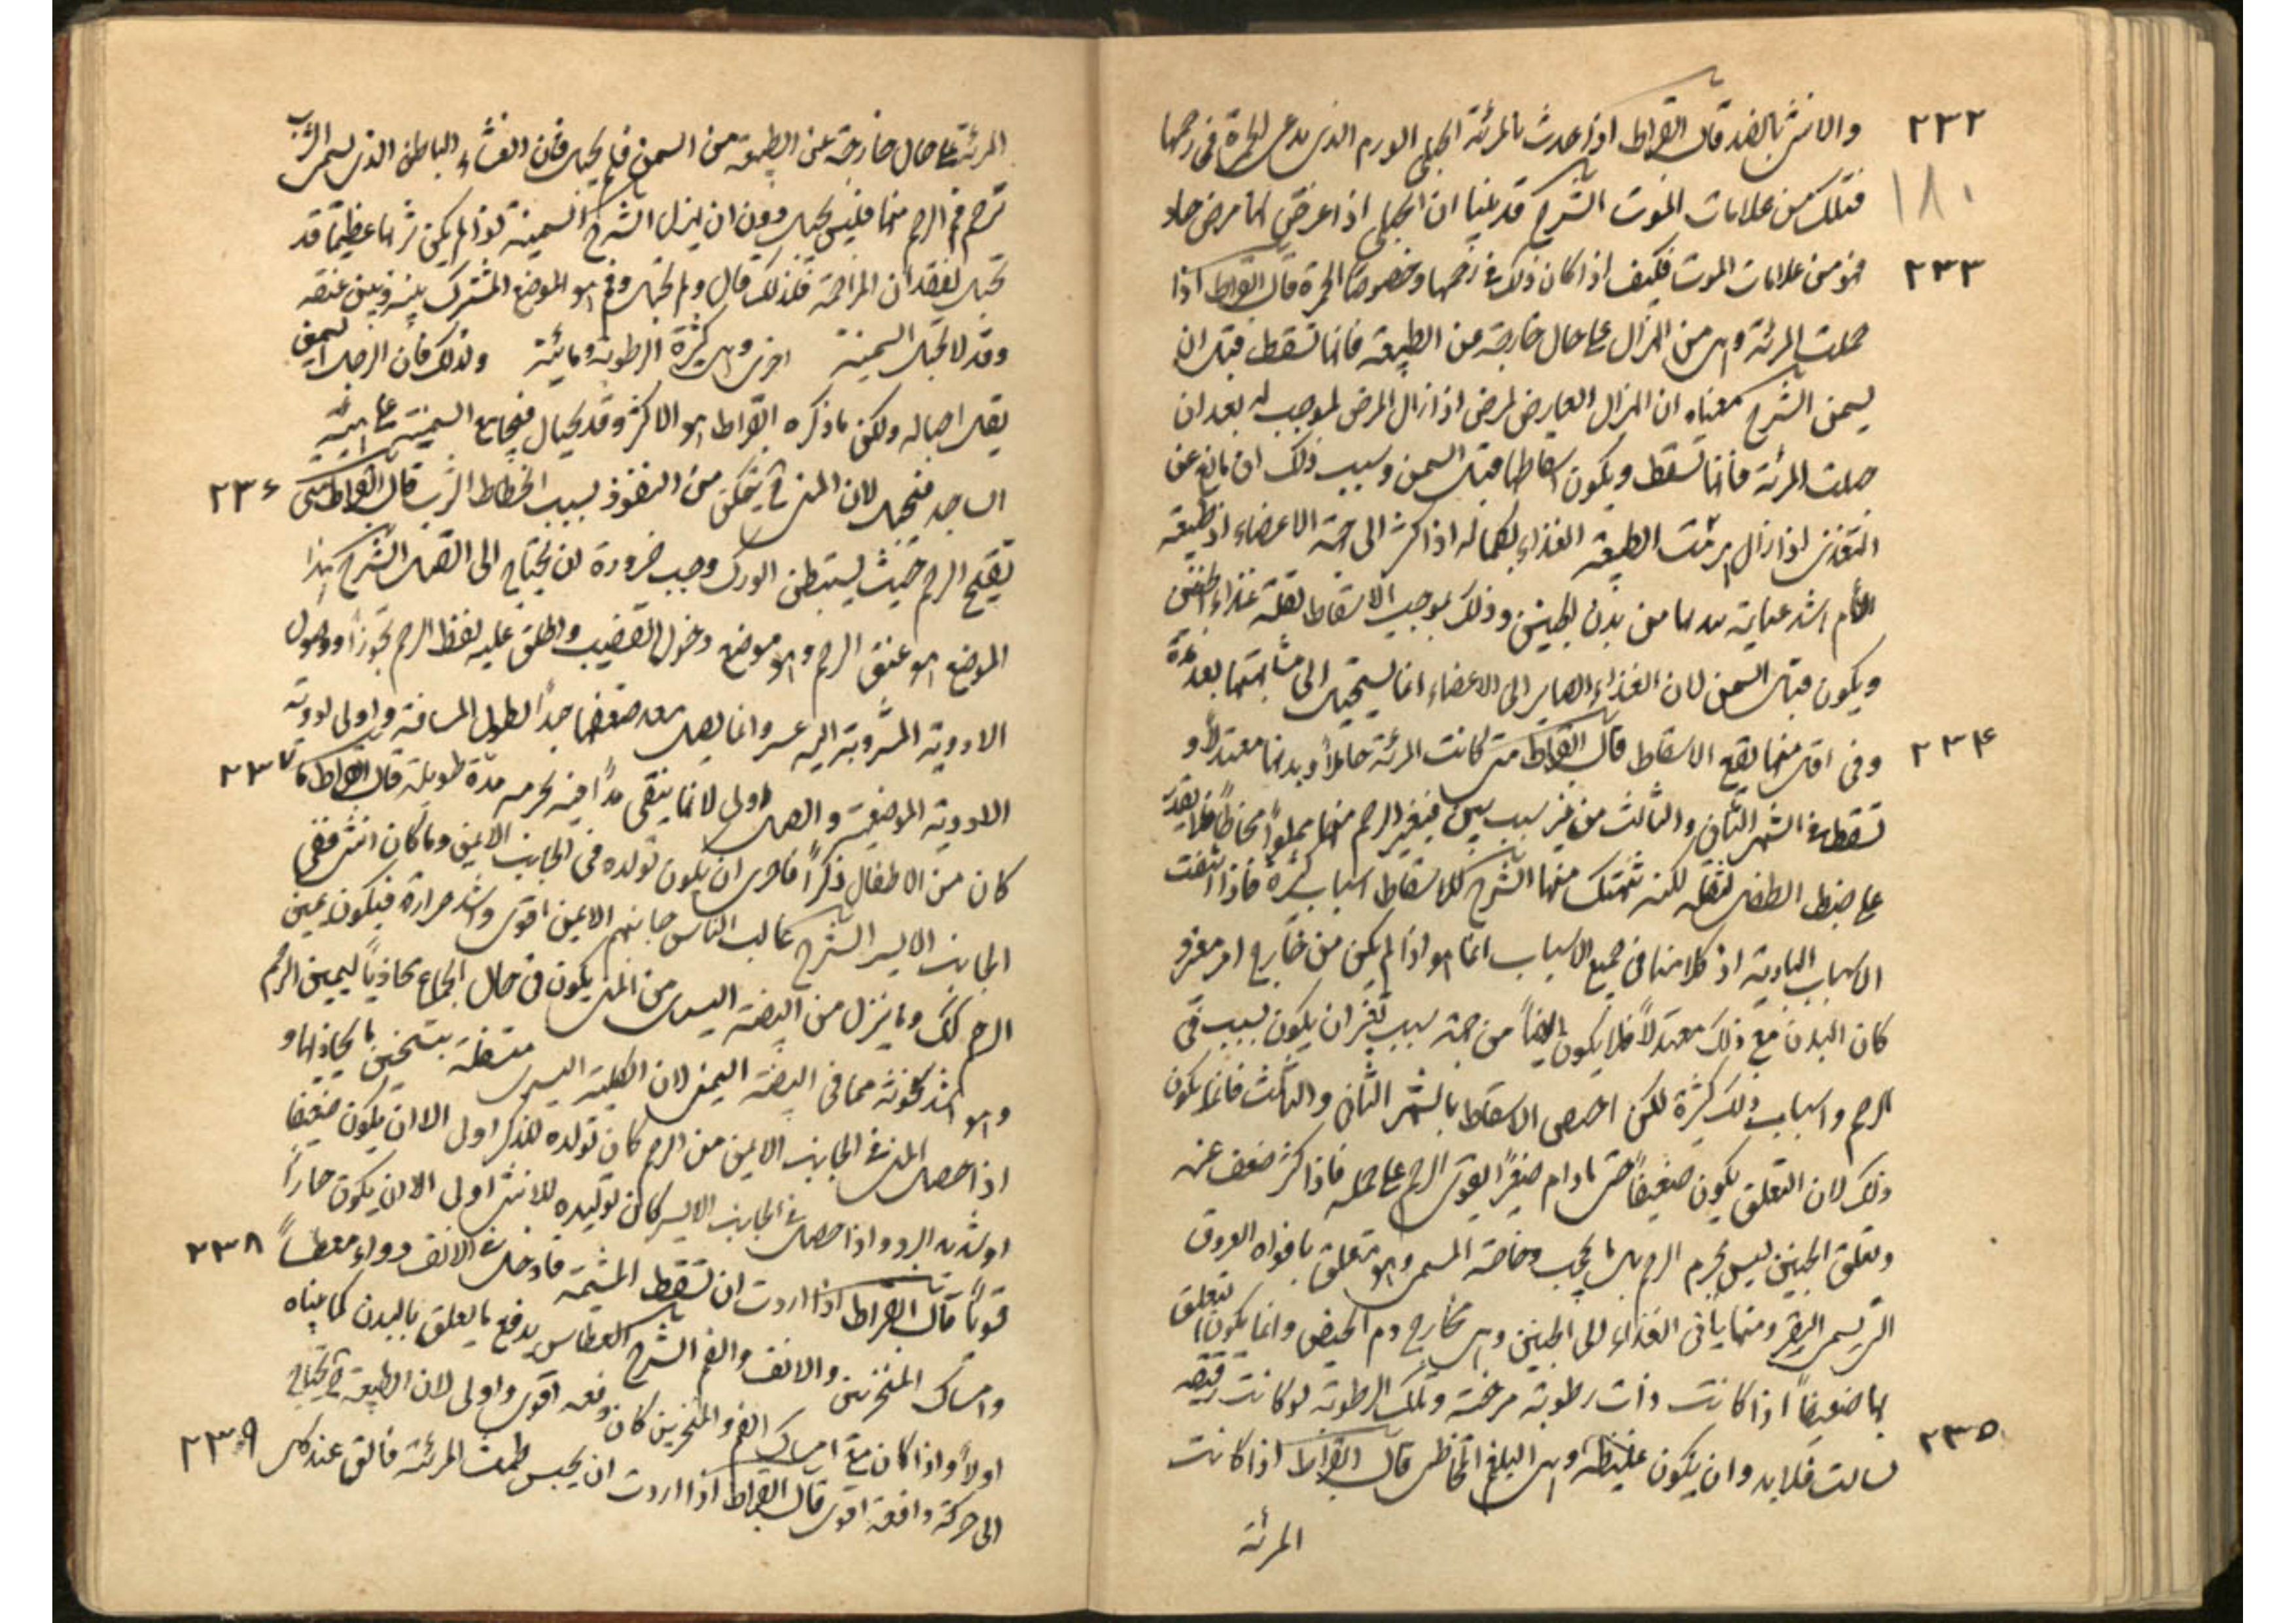 ٢٣٢ والانثى بالضد قال ابقراط اذا حدث بالمرئة الحبلى الورم الذى يدعى الحمرة فى رحمها
١٨٠ فتلك من علامات الموت الشرح قد بينا ان الحبلى اذا عرض لها مرض حاد
٢٣٣ فهو من علامات الموت فكيف اذا كان ذلك فى رحمها وخصوصا الحمرة قال ابقراط اذا
حملت المرئة وهى من الهزال على حال خارجة من الطبيعه فانها تسقط قبل ان
يسمن الشرح معناه ان الهزال العارض لمرض اذا زال المرض الموجب له بعد ان
حملت المرئة فانها تسقط ويكون اسقاطها قبل السمن وسبب ذلك ان مانع عن
التغذى اذا زال الطبيعة الغذاء لكماله اذا اكثر الى جهة الاعضاء اذ طبيعة
الام اشد عناية ببدنها من بدن الجنين وذلك يوجب الاسقاط لقلة غذاء الجنين
ويكون قبل السمن لان الغذاء الصاير الى الاعضاء انما يستحيل الى مشابهتها بعد مدة
٢٣٤ وفى اقل منها يقع الاسقاط قال ابقراط متى كانت المرئة حاملا وبدنها معتدلا و
تسقط فى الشهر الثانى والثالث من غير سبب بين فنقير الرحم منها مملوا مخاطا فلا يقدر
على ضبط الطفل لثقله لكنه تنهتك منها الشرح للاسقاط اسباب كثيرة فاذا انتفت
الاسباب البادية اذ كلامنا فى جميع الاسباب انما هو اذا لم يكن من خارج امر مغر و
كان البدن مع ذلك معتدلا فلا يكون ايضا من جهة سبب بقى ان يكون لسبب فى
الرحم واسباب ذلك كثيرة لكن اخص الاسقاط بالشهر الثانى والثالث فانما يكون
ذلك لان التعلق يكون ضعيفا حتى مادام صغيرا يقوى الرحم على حمله فاذا كثر ضعف عنه
وتعلق الجنين ليس بجرم الرحم بل بما يجب وخاصة المسمى وهو متعلق بافواه العروق
التى يسمى النقر ومنها ياتى الغذاء الى الجنين وهى مخارج دم الحيض وانما يكون تعلق
بها ضعيفا اذا كانت ذات رطوبة مرخية وتلك الرطوبة لو كانت رقيقه
٢٣٥ لسالت فلابد وان يكون غليظه وهى البلغم المخاطى قال ابقراط اذا كانت
المرئة
المرئة على حال خارجة عن الطبيعة من السمن فلم يحبل فان الغشاء الباطن الذى يسمى الثرب
يزحم فم الرحم منها فليس يحبل دون ان يهزل الشرح السمينة لو لم يكن ثربها عظيما قد
تحبل لفقدان المزاحمة فلذلك قال ولم تحبل وفم هو الموضع المشترك بينه وبين عنقه
وقد لا تحبل السمينة اخرى وهى كثيرة الرطوبة ومائية ولذلك فان الرجل السمين
يقل احباله ولكن ما ذكره ابقراط هو الاكثر وقد يحيال فيجامع السمينة على هيئة
الساجد فتحبل لان المنى ح يتمكن من النفوذ بسبب انحطاط الثرب قال ابقراط متى ٢٣٦
تقيح الرحم حيث يستبطن الورك وجب ضرورة ان يحتاج الى الفتل الشرح هذا
الموضع هو عنق الرحم وهو موضع دخول القضيب واطلق عليه لفظ الرحم تجوزا ووصول
الادوية المشروبة اليه عسر وانما يصل بعد ضعفها جدا لطول المسافة واولى ادوية
الادوية الموضعية والفتل اولى لانها يبقى مدا فيه بجرمه مدة طويلة قال ابقراط ما ٢٣٧
كان من الاطفال ذكرا فاحرى ان يكون تولده فى الجانب الايمن وما كان انثى ففى
الجانب الايسر الشرح غالب الناس جانبهم الايمن اقوى واشد حرارة فيكون يمين
الرحم كذلك وما ينزل من البيضة اليسرى من المنى يكون فى حال الجماع محاذيا ليمين الرحم
وهو اشد سخونة مما فى البيضة اليمنى لان الكلية اليسرى متسفلة بتسخين ما يحاذيها و
اذا حصل المنى فى الجانب الايمن من الرحم كان تولده للذكر اولى الا ان يكون ضعيفا
او شديد البرد واذا حصل فى الجانب الايسر كان توليده للانثى اولى الا ان يكون حارا
قويا قال ابقراط اذا اردت ان تسقط المشيمة فادخل فى الانف دواء معطسا ٢٣٨
وامسك المنخرين والانف والفم الشرح العطاس يدفع ما يعلق بالبدن كما بيناه
اولا واذا كان مع امساك الفم والمنخرين كان دفعه اقوى واولى لان الطبيعة ح تحتاج
الى حركة دافعة اقوى قال ابقراط اذا اردت ان يحبس طمث المرئة فالق عند كل ٢٣٩